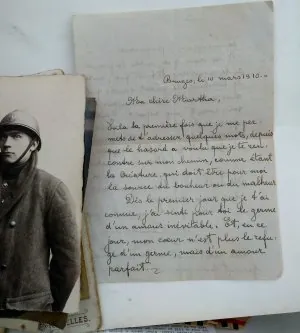 Bruges, le 10 mars 1910.-
Ma chère Martha,
C'est la première fois que je me per
mets de t'adresser quelques mots, depuis
que le hasard a voulu que je te ren
contre sur mon chemin, comme étant
la créature qui doit être pour moi
la source du bonheur ou du malheur
Dès le premier jour que je t'ai
connue, j'ai senti pour toi le germe
d'un amour inévitable. Et, en ce
jour, mon cœur n'est plus le refu
ge d'un germe, mais d'un amour
parfait.-
BRUXELLES.